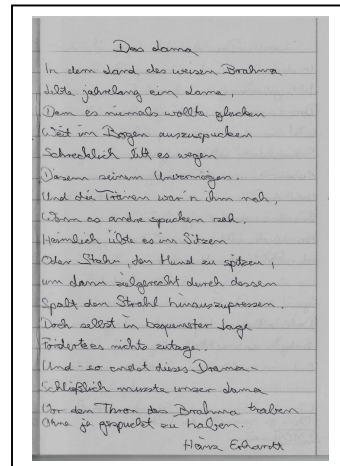 Das Lama
In dem Land des weisen Brahma
Lebte jahrelang ein Lama,
Dem es niemals wollte glücken
Weit im Bogen auszuspucken
Schrecklich litt es wegen
Diesem seinem Unvermögen.
Und die Tränen war'n ihm nah,
Wenn es andre spucken sah.
Heimlich übte es im Sitzen
Oder Stehn, den Mund zu spitzen,
um dann zielgerecht durch dessen
Spalt den Strahl hinauszupressen.
Doch selbst in bequemster Lage
Förderte es nichts zutage.
Und - so endet dieses Drama -
Schließlich musste unser Lama
Vor den Thron des Brahma traben
Ohne je gespuckt zu haben.
Heinz Erhardt